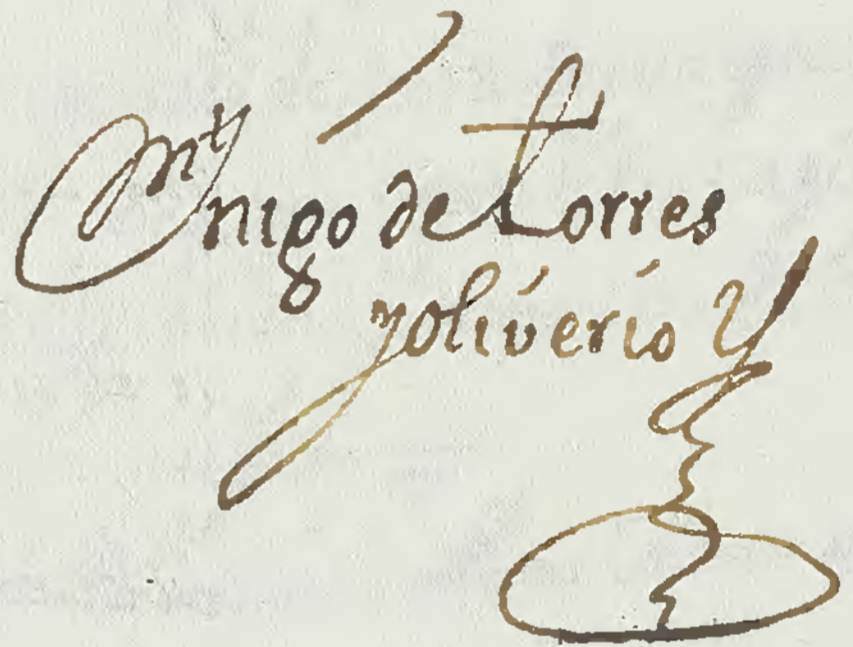 Mt Ynigo de Torres
y oliverio